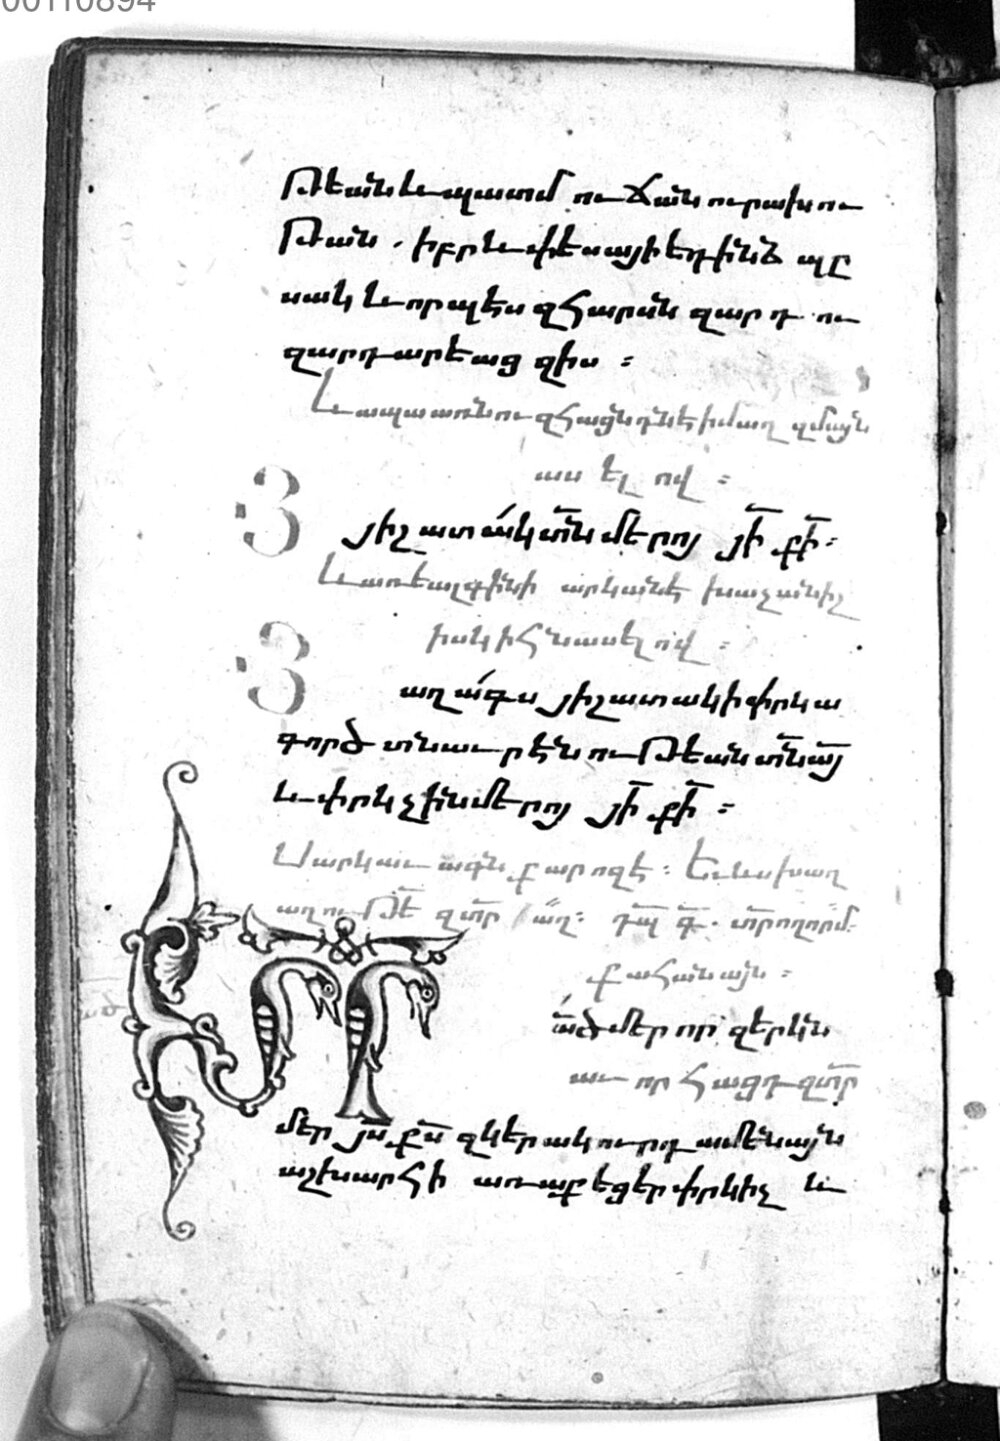 00110894
թեան և պատմուճան ուրախու
թան. իբրև փեսայի եդ ինձ պը
սակ և որպէս զհարսն զարդու
զարդարեաց զիս ։
Եւ ապա առնու զհացն դնէ ի մաղզմայն
ասելով ։
Յիշատակ տն մերոյ յի քի։
Եւ առեալ գինի արկանէ խաչանիշ
իսկ ի հնասելով ։
աղագս յիշատակի փրկա
գործ տնաւրէնութեան տնայ
և փրկչին մերոյ յի քի ։
Սարկաւագն քարոզէ ։ Եւ ևս խաղ
աղութէ զտր աղ։ դպ գ. տրողորմ.
քահանայն ։
ած մեր որ զերկն
աւոր հացդ զտր
մեր յս քս զկերակուրդ ամենայն
աշխարհի առաքեցեր փրկիչ և